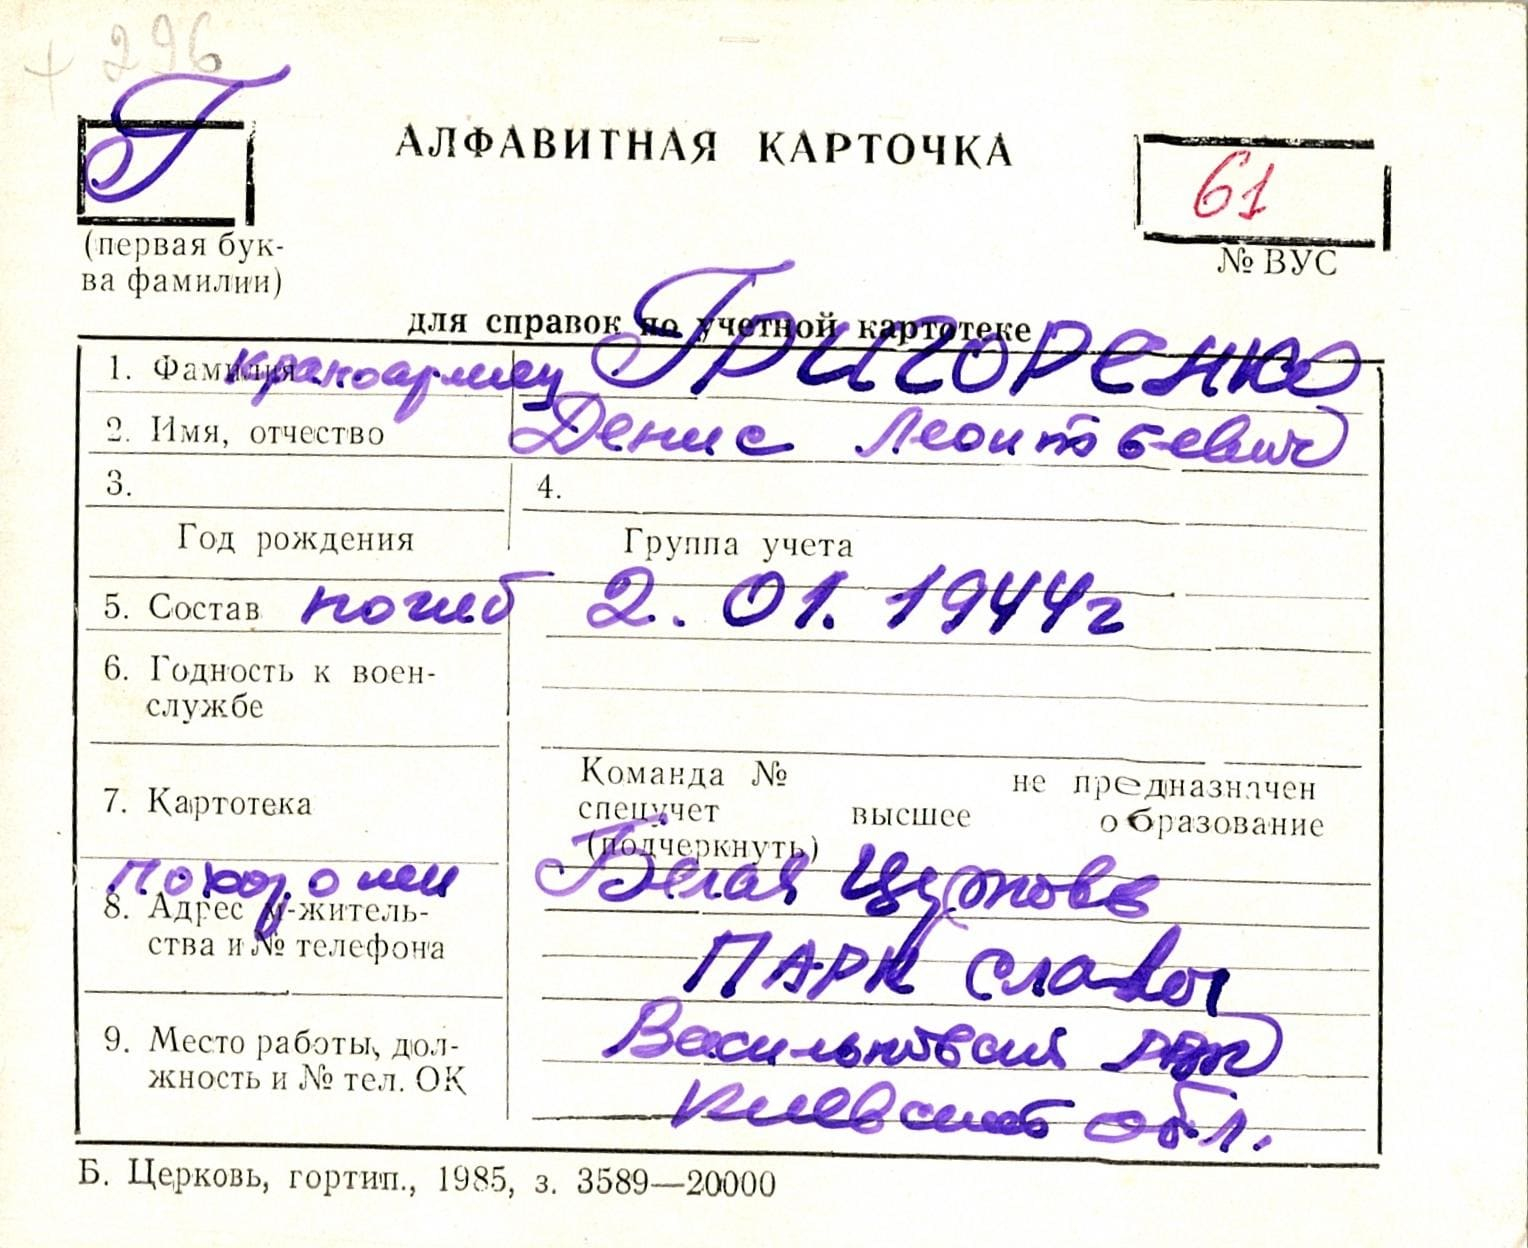 + 296
Г
АЛФАВИТНАЯ КАРТОЧКА
61
(первая бук-
ва фамилии)
№ ВУС
для справок по учетной картотеке
1. Фамилия красноармеец ГРИГОРЕНКО
2. Имя, отчество Денис Леонтьевич
3. 4.
Год рождения Группа учета
5. Состав погиб 2. 01. 1944г
6. Годность к воен-
службе
7. Картотека
Команда № не предназначен
спецучет высшее образование
(подчеркнуть)
похоронен Белая Церковь
8. Адрес м-житель-
ства и № телефона
ПАРК Славы
9. Место работы, дол-
жность и № тел. ОК
Васильковский
Киевской обл.
Б. Церковь, гортип., 1985, з. 3589—20000